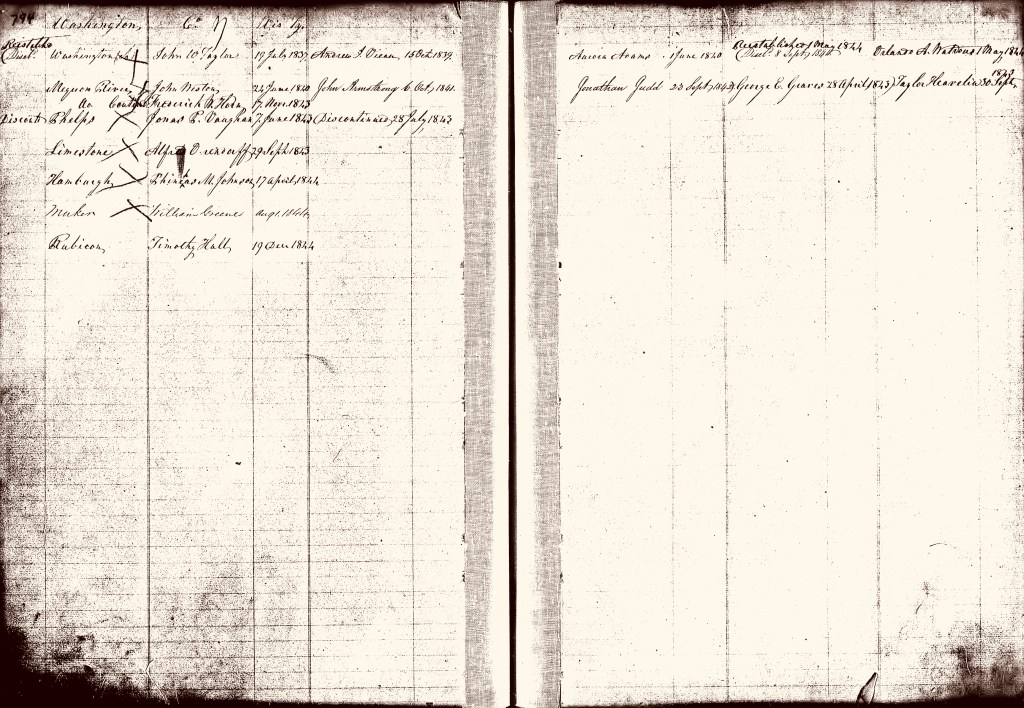 Washington, Co. Wis Ty.
Washington John W. Taylor 19 July 1837 Andrew J. Vieau 15 Oct. 1839.
Mequon River, John Weston, 24 June 1840 John Armstrong 6 Oct, 1841.
Do 17, Novr. 1843
Discont. Phelps Jonas P. Vaughan 7, June 1843 (Discontinued 28 July, 1843
Limestone 29 Sept. 1843
Hamburgh Phineas M. Johnson, 17 April, 1844
William Greene Aug 1. 1844
Rubicon, Timothy Hall, 19 Dec 1844
Reestablished 1 May 1844
1 June 1840 Disc. 8 Sept, Orlando A. Watrous 1 May 1844
Jonathan Judd 23 Sept, 1842 George E. Graves 28 April, 1843) Taylor Heavelin 30 Sept,
1843.